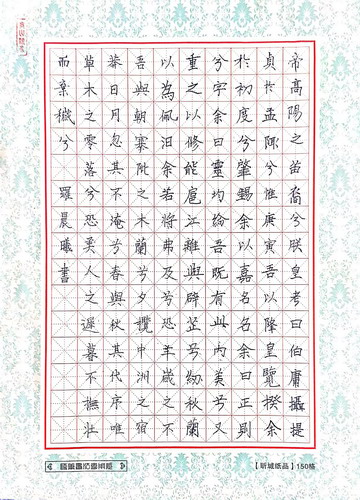 帝高陽之苗裔兮朕皇考曰伯庸攝提
貞於孟陬兮惟庚寅吾以降皇覽揆余
於初度兮肇錫余以嘉名名余曰正則
兮字余曰靈均紛吾既有此內美兮又
重之以修能扈江離與辟芷兮紉秋蘭
以為佩汩余若將弗及兮恐年歲之不
吾與朝搴阰之木蘭兮夕攬中洲之宿
莽日月忽其不淹兮春與秋其代序唯
草木之零落兮恐美人之遲暮不撫壯
而棄穢兮 羅晨曦書
【昕城纸品】150格